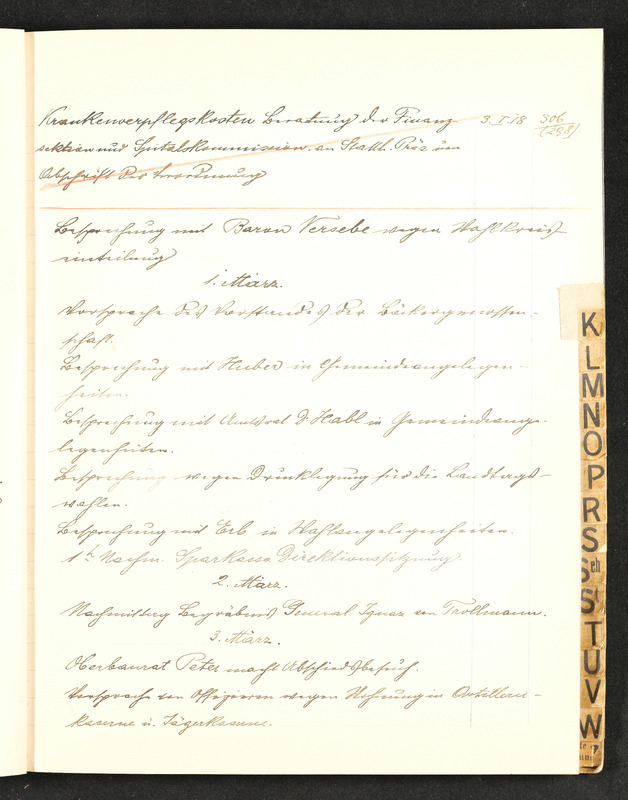 Krankenverpflegskosten Beratung der Finanz- 3.I.18 306
sektion und Spitalskommission. an Stattl. Präs um (298)
Abschrift des Verordnung
Besprechung mit Baron Versebe wegen Wahlkreis
einteilung
1. März.
Vorsprache des Vorstandes der Bäckergenossen-
schaft.
Besprechung mit Huber in Gemeindeangelegen-
heiten.
Besprechung mit Amtsrat Dr. Habl in Gemeindeange-
legenheiten.
Besprechung wegen Drucklegung für die Landtags-
wahlen.
Besprechung mit Erb in Wahlangelegenheiten.
1h Nachm. Sparkassa Direktionssitzung
2. März.
Nachmittag Begräbnis General Ignaz von Trollmann.
3. März.
Oberbaurat Peter macht Abschiedsbesuch.
Vorsprache von Offizieren wegen Wohnung in Artillerie-
kaserne u. Jägerkaserne.
K
L
M
N
O
P
R
S
Sch
St
T
U
V
W
Z